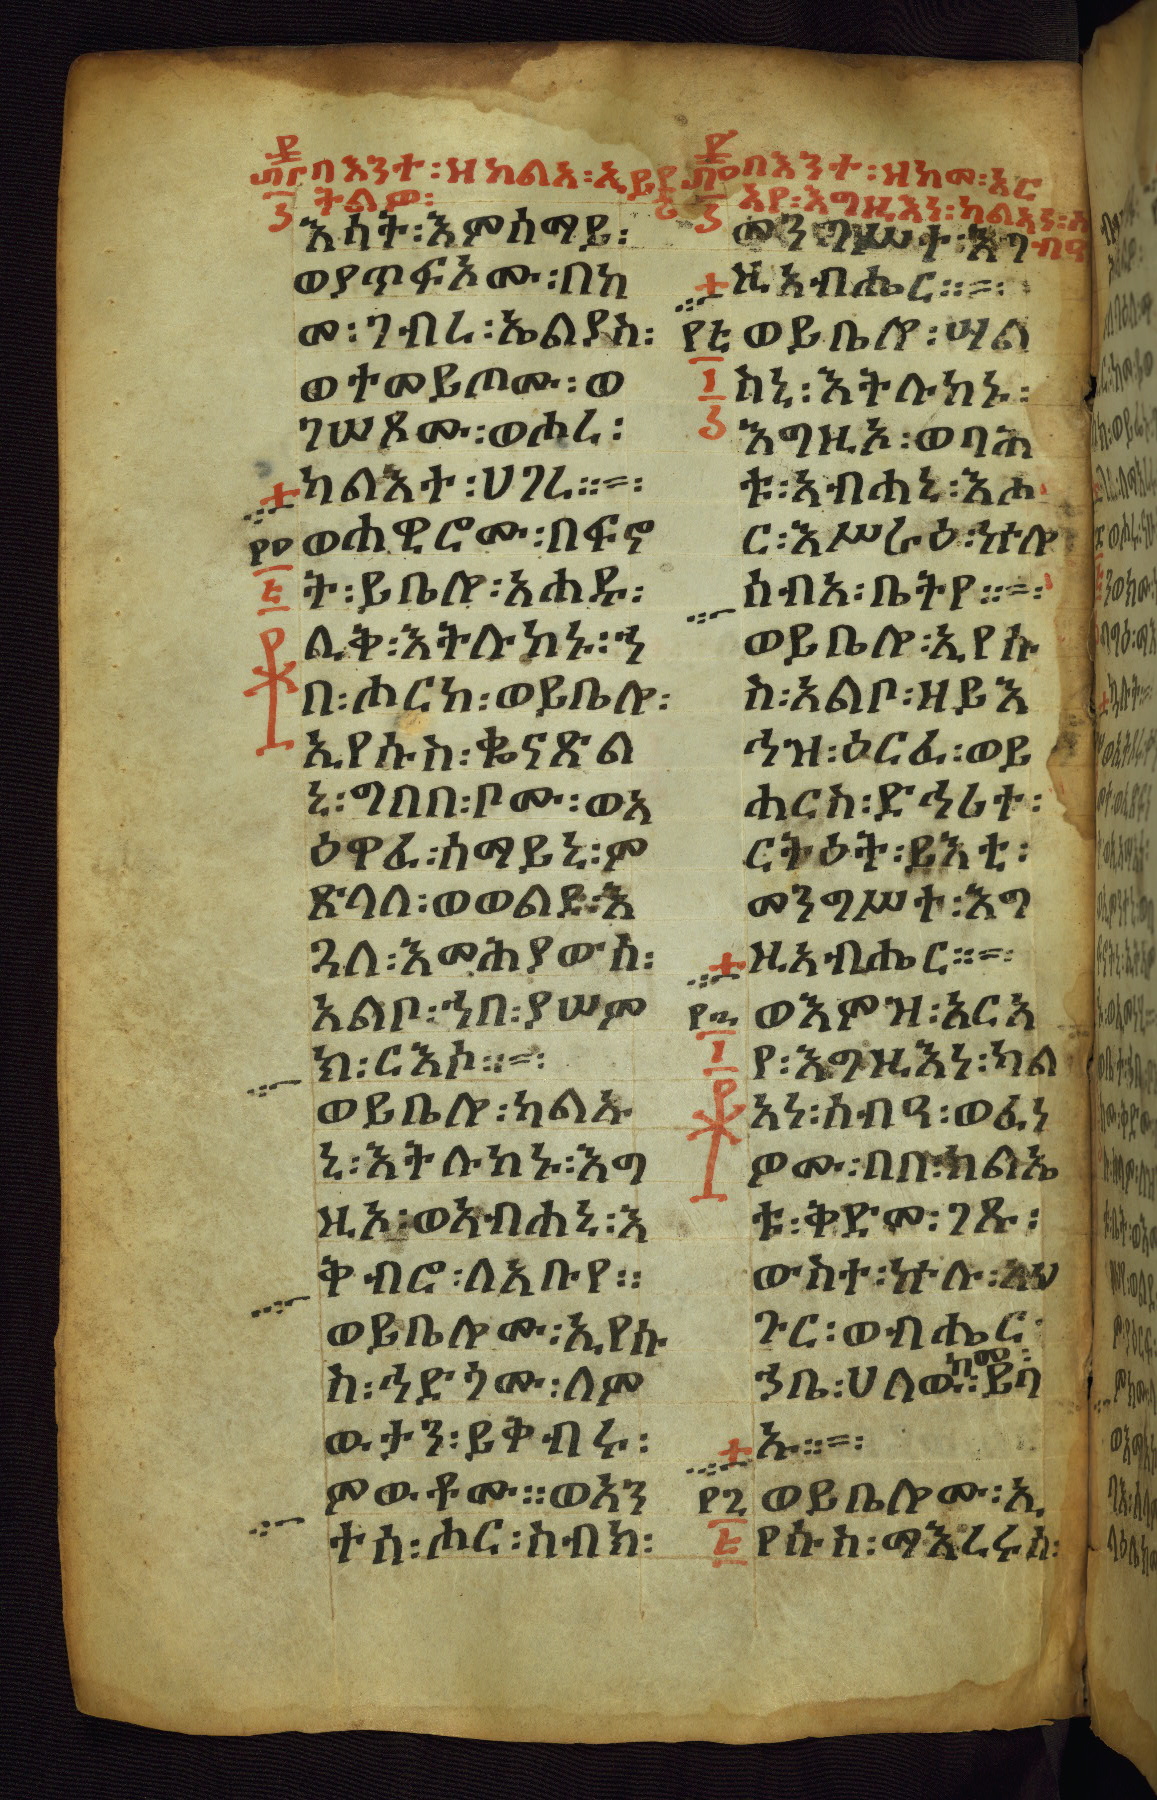 በእንተ፡ዘከልአ፡ኢይደ
ትልዎ፡
እሳት፡እምሰማይ፡
ወያጥፍኦሙ፡በከ
መ፡ገብረ፡ኤልያስ፡
ወተመይጦሙ፡ወ
ገሠጾሙ፡ወሖረ፡
ካልእተ፡ሀገረ።=፡
ወሐዊሮሙ፡በፍኖ
ት፡ይቤሎ፡አሐዱ፡
ሊቅ፡እትሉከኑ፡ኀ
በ፡ሖርከ፡ወይቤሎ፡
ኢየሱስ፡ቈናጽል
ኒ፡ግበበ፡ቦሙ፡ወአ
ዕዋፈ፡ሰማይኒ፡ም
ጽላለ፡ወወልደ፡እ
ጓለ፡እመሕያውሰ፡
አልቦ፡ኀበ፡ያሠም
ክ፡ርእሶ።=፡
ወይቤሎ፡ካልኡ
ኒ፡እትሉከኑ፡እግ
ዚኦ፡ወአብሐኒ፡እ
ቅብሮ፡ለአቡየ።
ወይቤሎሙ፡ኢየሱ
ስ፡ኀድጎሙ፡ለም
ውታን፡ይቅብሩ፡
ምውቶሙ።ወአን
ተሰ፡ሖር፡ስብክ፡
በእንተ፡ዘከመ፡አር
አየ፡እግዚእነ፡ካልአነ፡ሰ
ብዓ
መንግሥተ፡እግ
ዚአብሔር።=፡
ወይቤሎ፡ሣል
ስኒ፡እትሉከኑ፡
እግዚኦ፡ወባሕ
ቱ፡አብሐኒ፡እሖ
ር፡እሥራዕ፡ኵሎ
ሰብአ፡ቤትየ።=፡
ወይቤሎ፡ኢየሱ
ስ፡አልቦ፡ዘይእ
ኅዝ፡ዕርፈ፡ወይ
ሐርስ፡ድኅሪተ፡
ርትዕት፡ይእቲ፡
መንግሥተ፡እግ
ዚአብሔር።=፡
ወእምዝ፡አርአ
የ፡እግዚእነ፡ካል
አነ፡ሰብዓ፡ወፈነ
ዎሙ፡በበ፡ክልኤ
ቱ፡ቅድመ፡ገጹ፡
ውስተ፡ኵሉ፡አህ
ጉር፡ወብሔር፡
ኀቤ፡ሀለዎ፡ከመ፡ይባ
እ።=፡
ወይቤሎሙ፡ኢ
የሱስ፡ማእረሩሰ፡